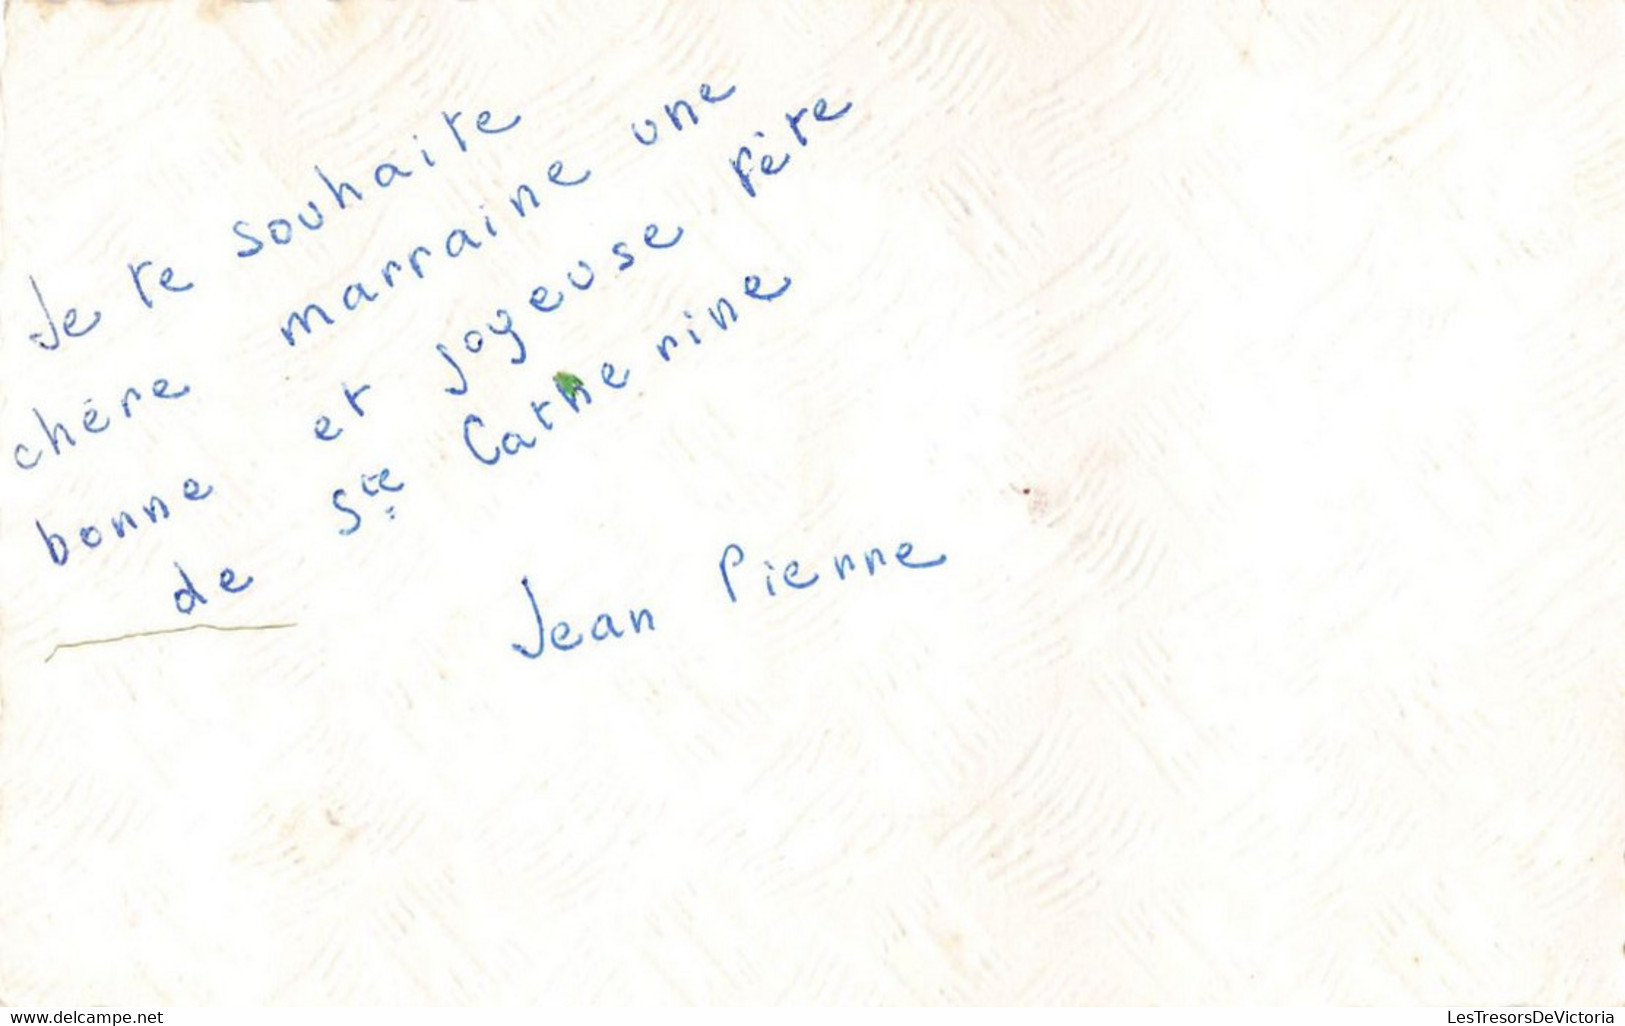 Je te souhaite
chère marraine une
bonne et joyeuse fête
de Ste Catherine
Jean Pierre
www.delcampe.net
LesTresorsDeVictoria